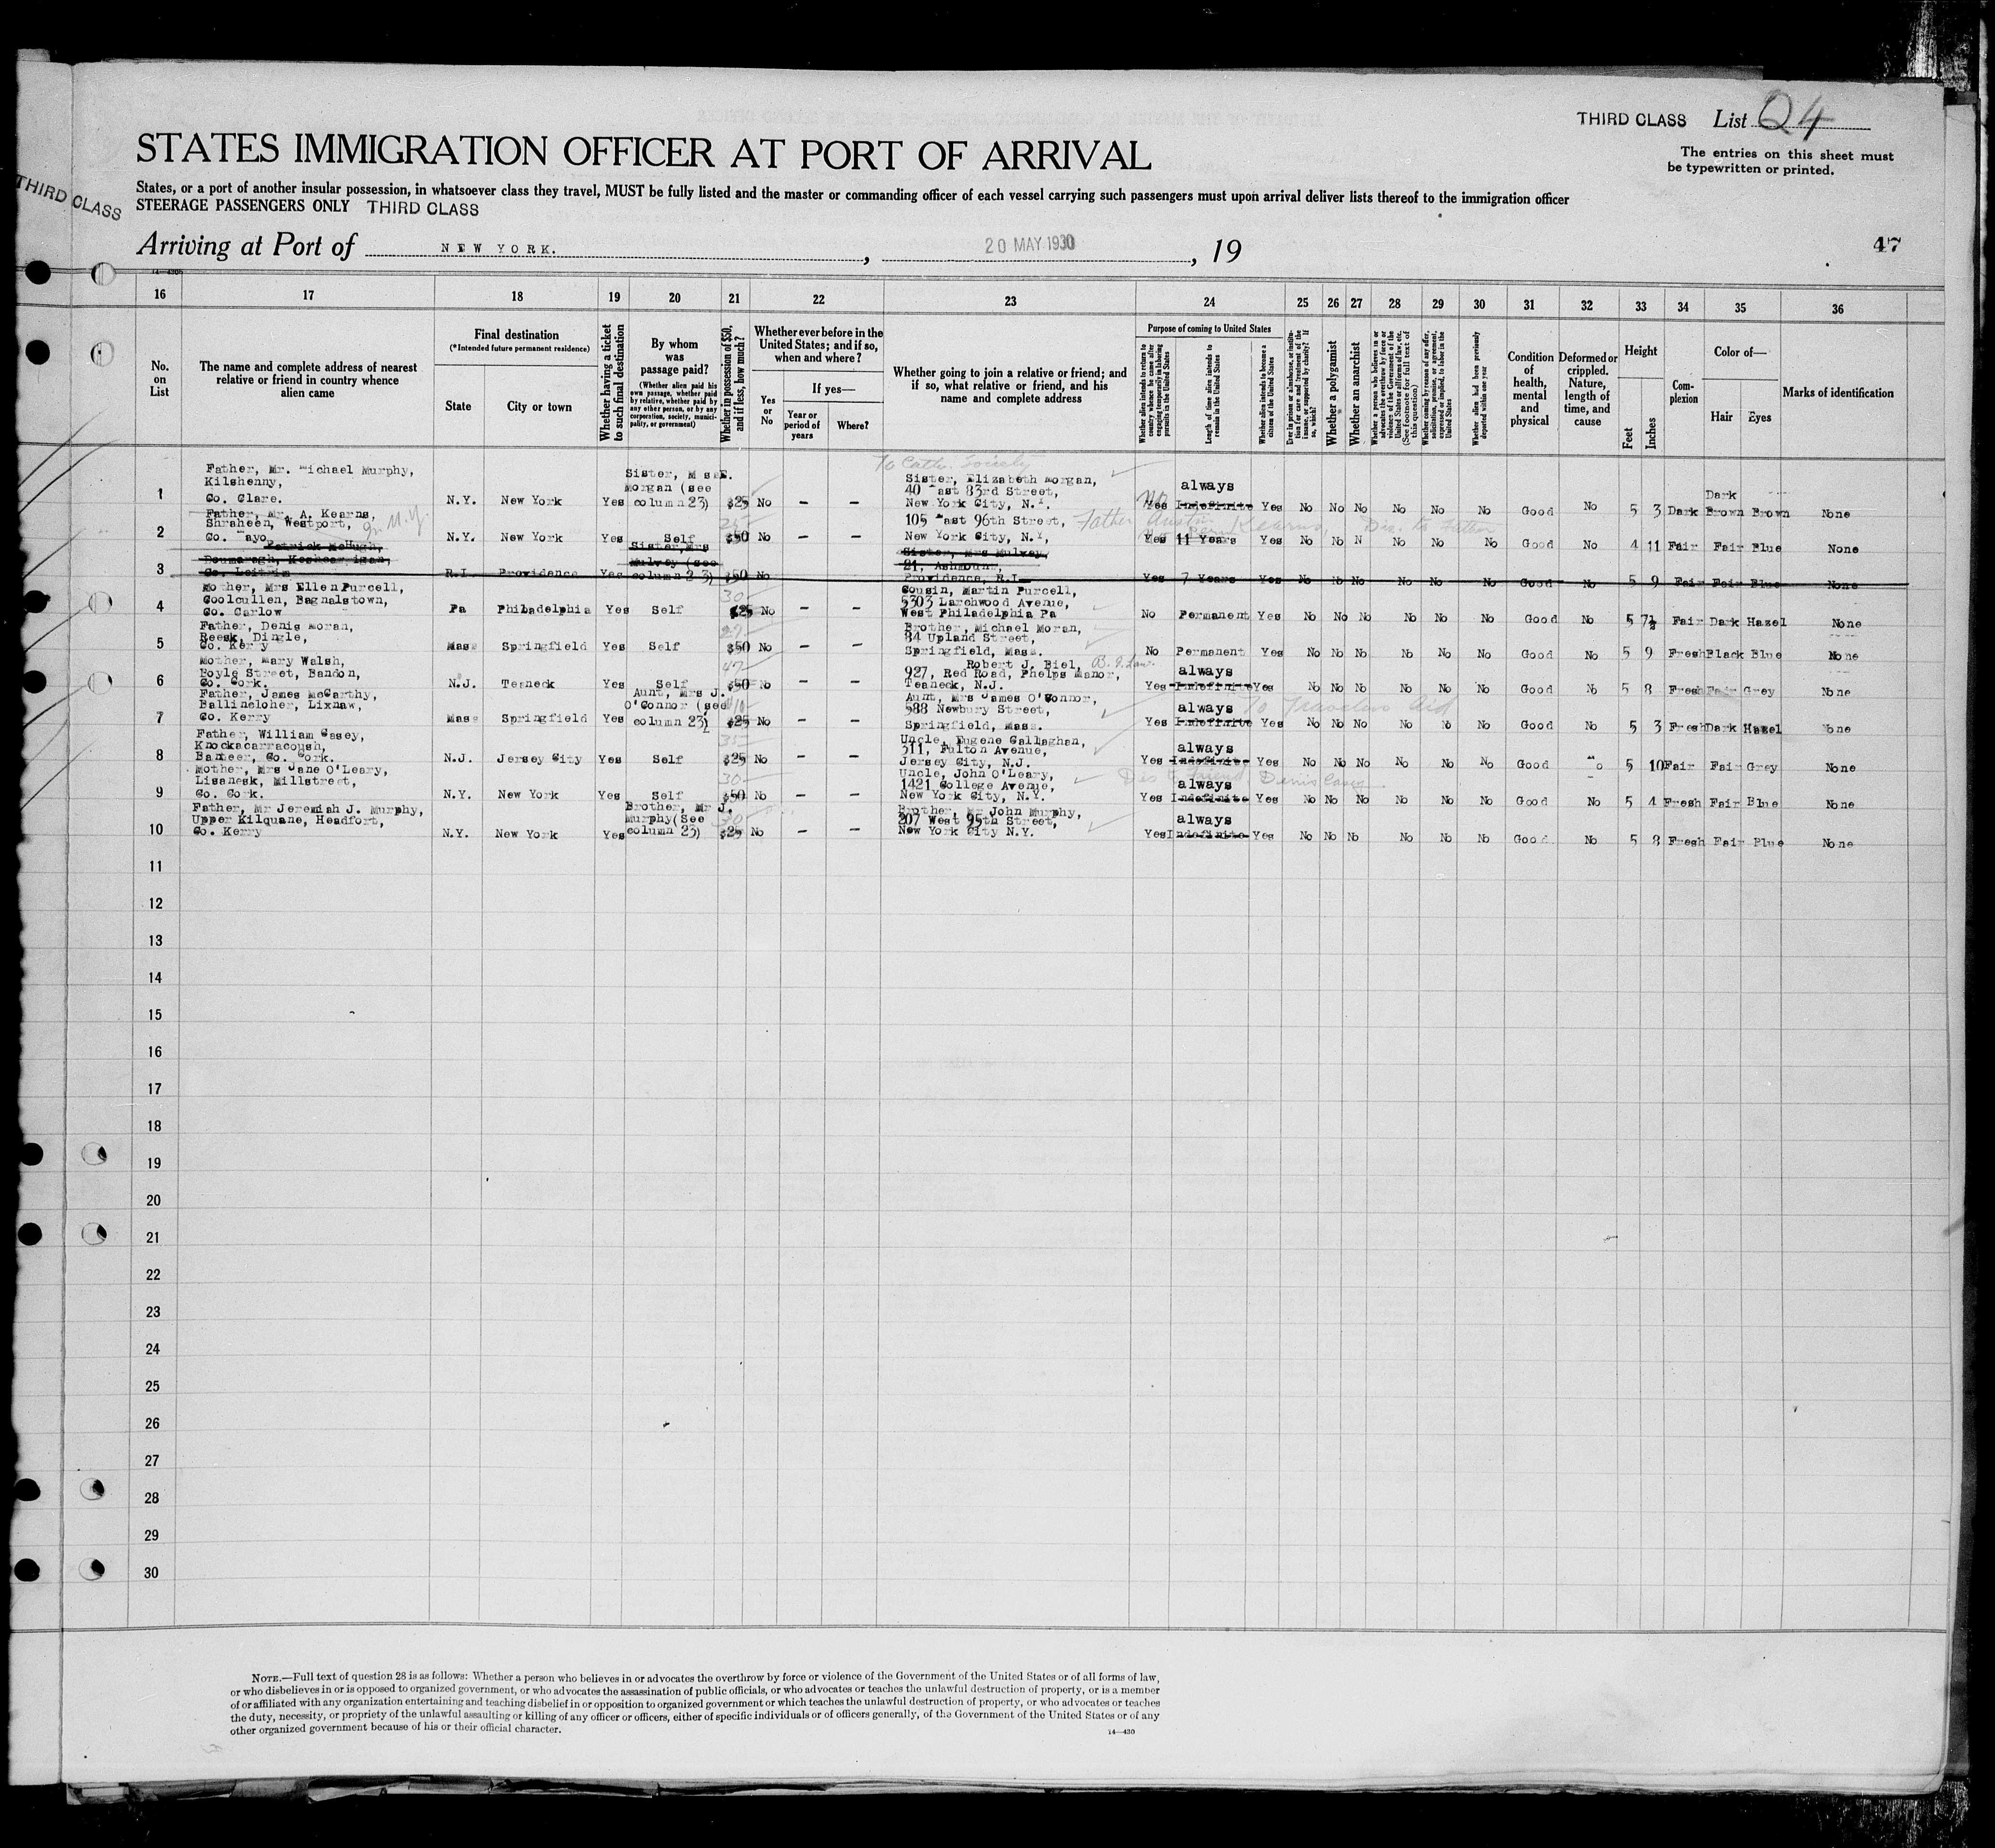 THIRD CLASS List 24
STATES IMMIGRATION OFFICER AT PORT OF ARRIVAL
The entries on this sheet must
be typewritten or printed.
THIRD CLASS
States, or a port of another insular possession, in whatsoever class they travel, MUST be fully listed and the master or commanding officer of each vessel carrying such passengers must upon arrival deliver lists thereof to the immigration officer
STEERAGE PASSENGERS ONLY THIRD CLASS
Arriving at Port of NEW YORK. , 20 MAY 1930 , 19
47
16 17 18 19 20 21 22 23 24 25 26 27 28 29 30 31 32 33 34 35 36
No.
on
List
The name and complete address of nearest
relative or friend in country whence
alien came
Final destination
(*Intended future permanent residence)
State City or town
Whether having a ticket
to such final destination
By whom
was
passage paid?
(Whether alien paid his
own passage, whether paid
by relative, whether paid by
any other person, or by any
corporation, society, munici-
pality, or government)
Whether in possession of $50,
and if less, how much?
Whether ever before in the
United States; and if so,
when and where?
Yes
or
No
If yes—
Year or
period of
years
Where?
Whether going to join a relative or friend; and
if so, what relative or friend, and his
name and complete address
Purpose of coming to United States
Whether alien intends to return to
country whence he came after
engaging temporarily in laboring
pursuits in the United States
Length of time alien intends to
remain in the United States
Whether alien intends to become a
citizen of the United States
Whether a polygamist
Whether an anarchist
Whether alien had been previously
deported within one year
Condition
of
health,
mental
and
physical
Deformed or
crippled.
Nature,
length of
time, and
cause
Height
Feet Inches
Com-
plexion
Color of—
Hair Eyes
Marks of identification
To Cath. Society
Father, Mr. Michael Murphy,
Kilshenny,
Co. Clare.
1 N.Y. New York Yes
Sister, M ssE.
Morgan (see
column 23) $25 No – –
Sister, Elizabeth Morgan,
40 East 83rd Street,
New York City, N.Y.
No Yes always Indefinite Yes No No No No No No Good No 5 3 Dark Dark Brown Brown None
Father, Mr. A. Kearns,
Shraheen, Westport,
Co. Mayo
in N.Y.
2 N.Y. New York Yes Self 25 $50 No – –
105 East 96th Street,
New York City, N.Y,
Father Austin Kearns, Dis. to Father
Yes 11 Years Yes No No N No No No Good No 4 11 Fair Fair Blue None
Patrick McHugh,
Co. Leitrim
3 R.I. Providence Yes
Sister, Mrs
Mulvey (see
column 23) $50 No
Sister, Mrs Mulvey,
21, Ashmount,
Providence, R.I.
Yes 7 Years Yes No No No No No No Good No 5 9 Fair Fair Blue None
Mother, Mrs Ellen Purcell,
Coolcullen, Bagnalstown,
Co. Carlow
4 Pa Philadelphia Yes Self 30 $25 No – –
Cousin, Martin Purcell,
5303 Larchwood Avenue,
West Philadelphia Pa
No Permanent Yes No No No No No No Good No 5 7½ Fair Dark Hazel None
Father, Denis Moran,
Reesk, Dingle,
Co. Kerry
5 Mass Springfield Yes Self $50 No – –
Brother, Michael Moran,
84 Upland Street,
Springfield, Mass.
No Permanent Yes No No No No No No Good No 5 9 Fresh Black Blue None
Mother, Mary Walsh,
Boyle Street, Bandon,
Co. Cork.
6 N.J. Teaneck Yes Self 47 $50 No – –
Robert J. Biel, B. I. Law.
927, Red Road, Phelps Manor,
Teaneck, N.J.
Yes always Indefinite Yes No No No No No No Good No 5 8 Fresh Fair Grey None
Father, James McCarthy,
Ballineloher, Lixnaw,
Co. Kerry
7 Mass Springfield Yes
Aunt, Mrs J.
O'Connor (see
column 23) $25 No – –
Aunt, Mrs James O'Connor,
588 Newbury Street,
Springfield, Mass.
To Travelers Aid
Yes always Indefinite Yes No No No No No No Good No 5 3 Fresh Dark Hazel None
Father, William Casey,
Knockacarracoush,
Banteer, Co. Cork.
8 N.J. Jersey City Yes Self 35 $25 No – –
Uncle, Eugene Callaghan,
311, Fulton Avenue,
Jersey City, N.J.
Yes always Indefinite Yes No No No No No No Good No 5 10 Fair Fair Grey None
Dis to friend Denis Casey
Mother, Mrs Jane O'Leary,
Lisanesk, Millstreet,
Co. Cork.
9 N.Y. New York Yes Self 30 $50 No – –
Uncle, John O'Leary,
1421 College Avenue,
New York City, N.Y.
Yes always Indefinite Yes No No No No No No Good No 5 4 Fresh Fair Blue None
Father, Mr Jeremiah J. Murphy,
Upper Kilquane, Headfort,
Co. Kerry
10 N.Y. New York Yes
Brother, Mr J.
Murphy (See
column 23) 30 $25 No – –
Brother, Mr John Murphy,
207 West 95th Street,
New York City N.Y.
Yes always Indefinite Yes No No No No No No Good No 5 8 Fresh Fair Blue None
11
12
13
14
15
16
17
18
19
20
21
22
23
24
25
26
27
28
29
30
NOTE.—Full text of question 28 is as follows: Whether a person who believes in or advocates the overthrow by force or violence of the Government of the United States or of all forms of law,
or who disbelieves in or is opposed to organized government, or who advocates the assassination of public officials, or who advocates or teaches the unlawful destruction of property, or is a member
of or affiliated with any organization entertaining and teaching disbelief in or opposition to organized government or which teaches the unlawful destruction of property, or who advocates or teaches
the duty, necessity, or propriety of the unlawful assaulting or killing of any officer or officers, either of specific individuals or of officers generally, of the Government of the United States or of any
other organized government because of his or their official character.
14—430